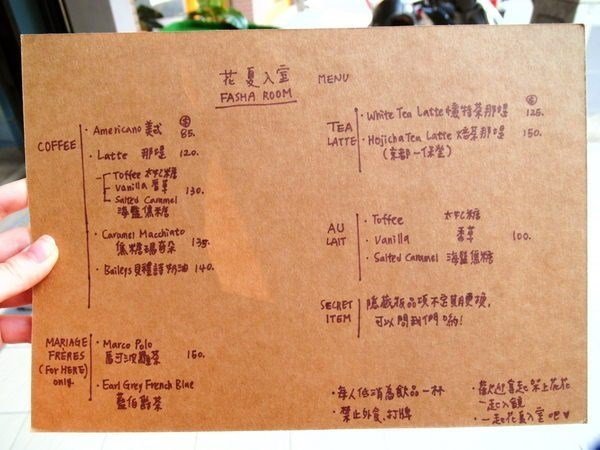 花夏入室 MENU
FASHA ROOM
COFFEE
· Americano 美式 85.
· Latte 那堤 120.
Toffee 太妃糖
Vanilla 香草 130.
Salted Caramel
海鹽焦糖
· Caramel Macchiato
焦糖瑪奇朵 135.
· Baileys 貝禮詩奶油 140.
MARIAGE
FRÈRES
(For HERE)
only.
· Marco Polo
馬可波羅茶 150.
· Earl Grey French Blue
藍伯爵茶
TEA
LATTE
· White Tea Latte 懷特茶那堤 125.
· Hojicha Tea Latte 焙茶那堤 150.
(京都一保堂)
AU
LAIT
· Toffee 太妃糖
· Vanilla 香草 100.
· Salted Caramel 海鹽焦糖
SECRET
ITEM
隱藏版品項不定期更換,
可以問我們喲!
· 每人低消為飲品一杯
· 禁止外食.打牌
· 歡迎拿起架上花花
一起入鏡
· 一起花夏入室吧♥